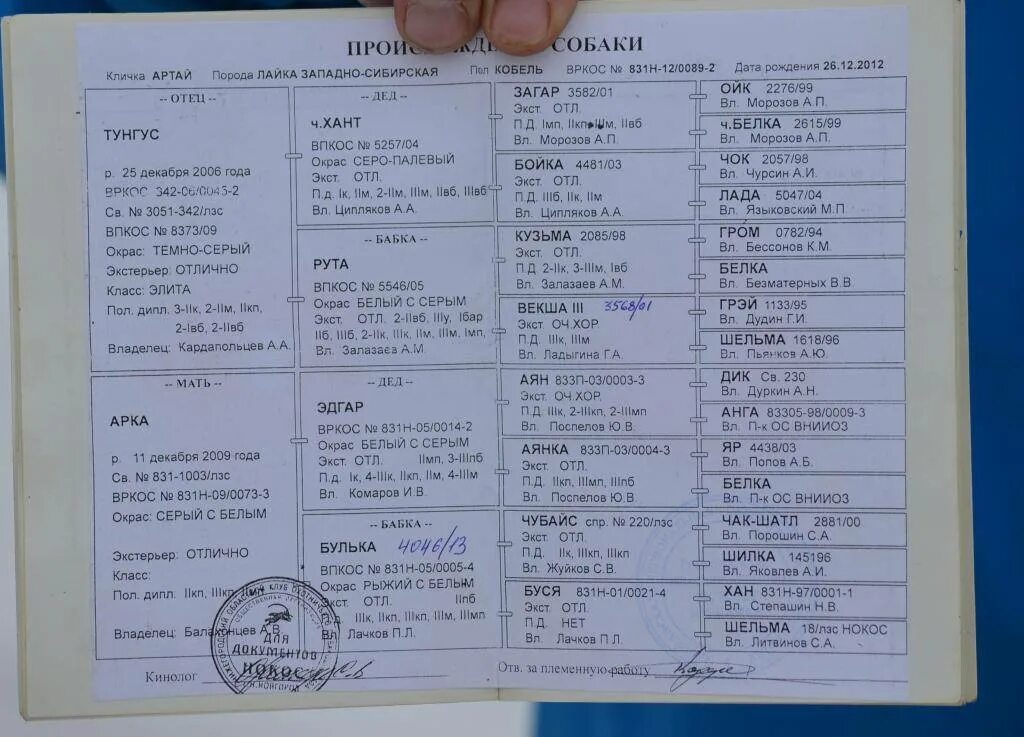 ПРОИСХОЖДЕНИЕ СОБАКИ
Кличка АРТАЙ Порода ЛАЙКА ЗАПАДНО-СИБИРСКАЯ Пол КОБЕЛЬ ВРКОС № 831Н-12/0089-2 Дата рождения 26.12.2012
-- ОТЕЦ --
ТУНГУС
р. 25 декабря 2006 года
ВРКОС 342-06/0045-2
Св. № 3051-342/лзс
ВПКОС № 8373/09
Окрас: ТЕМНО-СЕРЫЙ
Экстерьер: ОТЛИЧНО
Класс: ЭЛИТА
Пол. дипл. 3-IIк, 2-IIм, IIкп,
2-Iвб, 2-IIвб
Владелец: Кардапольцев А.А.
-- МАТЬ --
АРКА
р. 11 декабря 2009 года
Св. № 831-1003/лзс
ВРКОС № 831Н-09/0073-3
Окрас: СЕРЫЙ С БЕЛЫМ
Экстерьер: ОТЛИЧНО
Класс:
Пол. дипл. IIкп, IIIкп
Владелец: Балахонцев А.В.
-- ДЕД --
ч.ХАНТ
ВПКОС № 5257/04
Окрас СЕРО-ПАЛЕВЫЙ
Экст. ОТЛ.
П.д. Iк, IIм, 2-IIм, IIIм, IIвб, IIIвб
Вл. Ципляков А.А.
-- БАБКА --
РУТА
ВПКОС № 5546/05
Окрас БЕЛЫЙ С СЕРЫМ
Экст. ОТЛ. 2-IIвб, IIIу, Iбар
IIб, IIIб, 2-IIк, IIIк, IIм, IIIм, Iмп,
Вл. Залазаев А.М.
-- ДЕД --
ЭДГАР
ВРКОС № 831Н-05/0014-2
Окрас БЕЛЫЙ С СЕРЫМ
Экст. ОТЛ. IIмп, 3-IIIпб
П.д. Iк, 4-IIIк, IIкп, IIм, 4-IIIм
Вл. Комаров И.В.
-- БАБКА --
БУЛЬКА 4046/13
ВПКОС № 831Н-05/0005-4
Окрас РЫЖИЙ С БЕЛЫМ
Экст. ОТЛ. IIпб
IIIк, IIк, IIIкп, IIм, IIIм, IIIмп
Вл. Лачков П.Л.
ЗАГАР 3582/01
Экст. ОТЛ.
П.Д. Iмп, IIкп, IIIм, IIвб
Вл. Морозов А.П.
БОЙКА 4481/03
Экст. ОТЛ.
П.Д. IIIб, IIк, IIм
Вл. Ципляков А.А.
КУЗЬМА 2085/98
Экст. ОТЛ.
П.Д. 2-IIк, 3-IIIм, Iвб
Вл. Залазаев А.М.
ВЕКША III 3568/01
Экст. ОЧ.ХОР.
П.Д. IIIк, IIIм
Вл. Ладыгина Г.А.
АЯН 833П-03/0003-3
Экст. ОЧ.ХОР.
П.Д. IIIк, 2-IIIкп, 2-IIIмп
Вл. Поспелов Ю.В.
АЯНКА 833П-03/0004-3
Экст. ОТЛ.
П.Д. IIкп, IIIмп, IIIпб
Вл. Поспелов Ю.В.
ЧУБАЙС спр. № 220/лзс
Экст. ОТЛ.
П.Д. IIк, IIIкп, IIIкп
Вл. Жуйков С.В.
БУСЯ 831Н-01/0021-4
Экст. ОТЛ.
П.Д. НЕТ
Вл. Лачков П.Л.
ОЙК 2276/99
Вл. Морозов А.П.
ч.БЕЛКА 2615/99
Вл. Морозов А.П.
ЧОК 2057/98
Вл. Чурсин А.И.
ЛАДА 5047/04
Вл. Языковский М.П.
ГРОМ 0782/94
Вл. Бессонов К.М.
БЕЛКА
Вл. Безматерных В.В.
ГРЭЙ 1133/95
Вл. Дудин Г.И.
ШЕЛЬМА 1618/96
Вл. Пьянков А.Ю.
ДИК Св. 230
Вл. Дуркин А.Н.
АНГА 83305-98/0009-3
Вл. П-к ОС ВНИИОЗ
ЯР 4438/03
Вл. Попов А.Б.
БЕЛКА
Вл. П-к ОС ВНИИОЗ
ЧАК-ШАТЛ 2881/00
Вл. Порошин С.А.
ШИЛКА 145196
Вл. Яковлев А.И.
ХАН 831Н-97/0001-1
Вл. Степашин Н.В.
ШЕЛЬМА 18/лзс НОКОС
Вл. Литвинов С.А.
ДЛЯ
ДОКУМЕНТОВ
НОКОС
Кинолог
Отв. за племенную работу